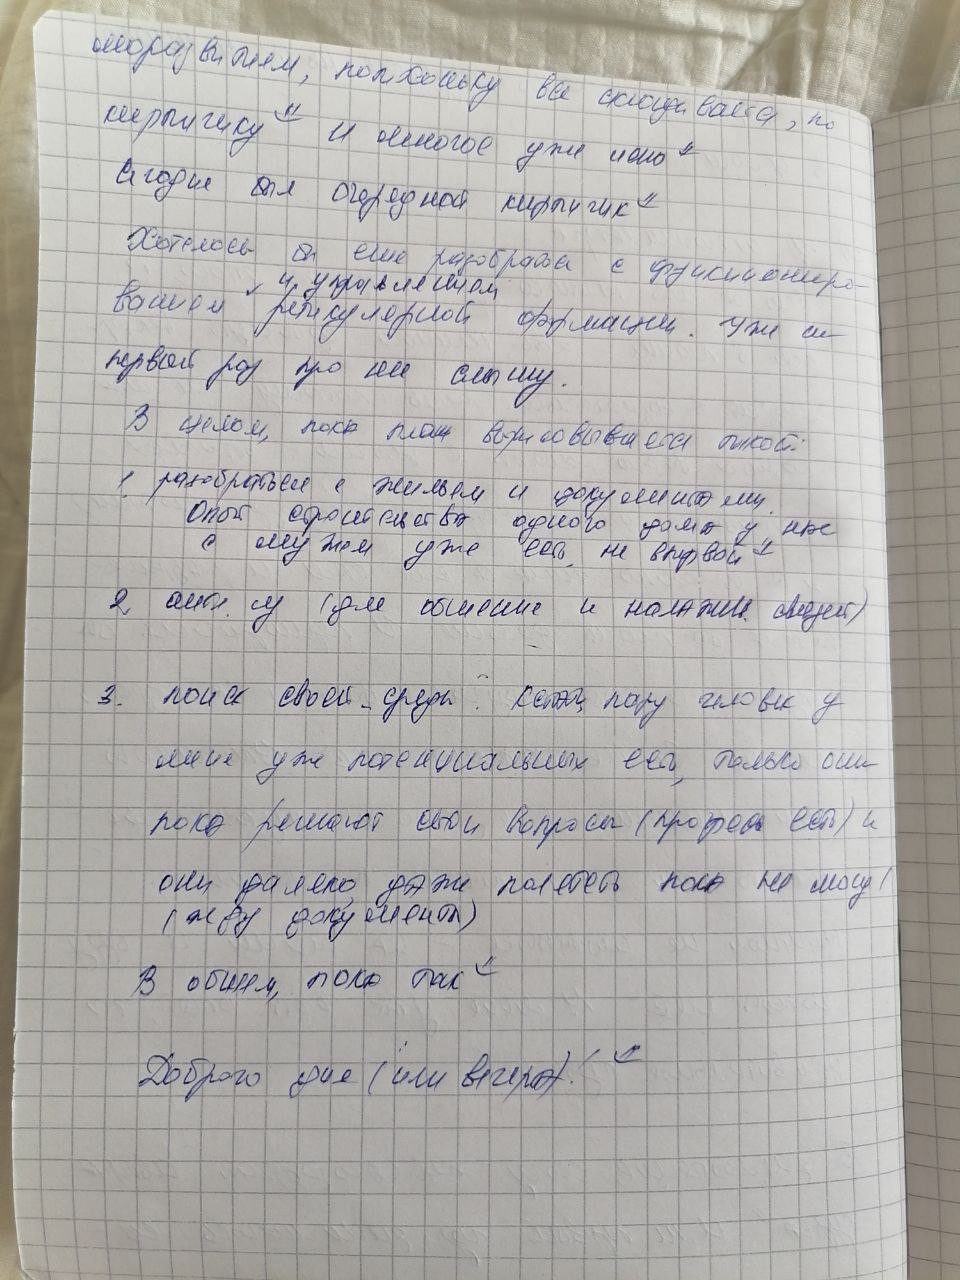 саморазвитием, потихоньку все складывается, по
кирпичику И многое уже ясно
Сегодня был очередной кирпичик
Хотелось бы еще разобраться с функциониро-
ванием и управлением ретикулярной формации. Уже не
первый раз про нее слышу.
В целом, пока план вырисовывается такой:
1. разобраться с жильем и документами.
Опыт строительства одного дома у нас
с мужем уже есть, не впервой
2. англ. яз (для общения и налажив. связей)
3. поиск своей среды. Кстати, пару человек у
меня уже потенциальных есть, только они
пока решают свои вопросы (прогресс есть) и
они далеко, даже полететь пока не могу
(жду документы)
В общем, пока так
Доброго дня (или вечера)!